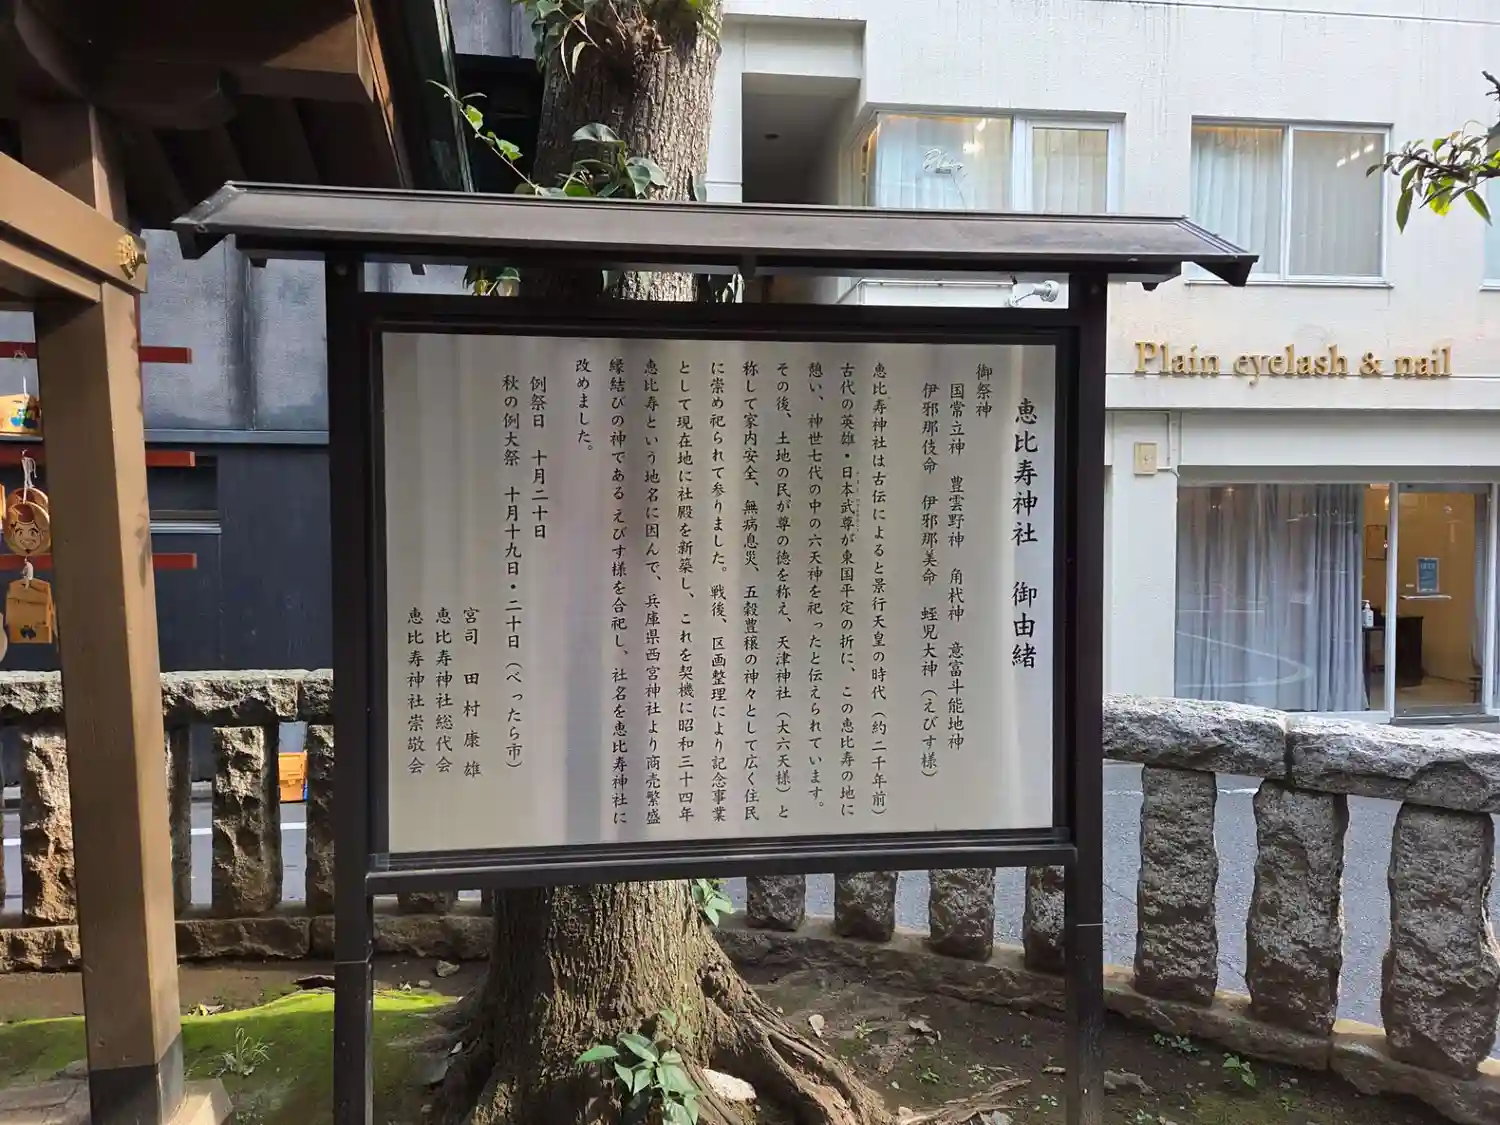 恵比寿神社 御由緒
御祭神
国常立神 豊雲野神 角杙神 意富斗能地神
伊邪那伎命 伊邪那美命 蛭児大神(えびす様)
恵比寿神社は古伝によると景行天皇の時代(約二千年前)
古代の英雄・日本武尊が東国平定の折に、この恵比寿の地に
憩い、神世七代の中の六天神を祀ったと伝えられています。
その後、土地の民が尊の徳を称え、天津神社(大六天様)と
称して家内安全、無病息災、五穀豊穣の神々として広く住民
に崇め祀られて参りました。戦後、区画整理により記念事業
として現在地に社殿を新築し、これを契機に昭和三十四年
恵比寿という地名に因んで、兵庫県西宮神社より商売繁盛
縁結びの神である えびす様を合祀し、社名を恵比寿神社に
改めました。
例祭日 十月二十日
秋の例大祭 十月十九日・二十日(べったら市)
宮司 田村康雄
恵比寿神社総代会
恵比寿神社崇敬会
Plain eyelash & nail
Plain